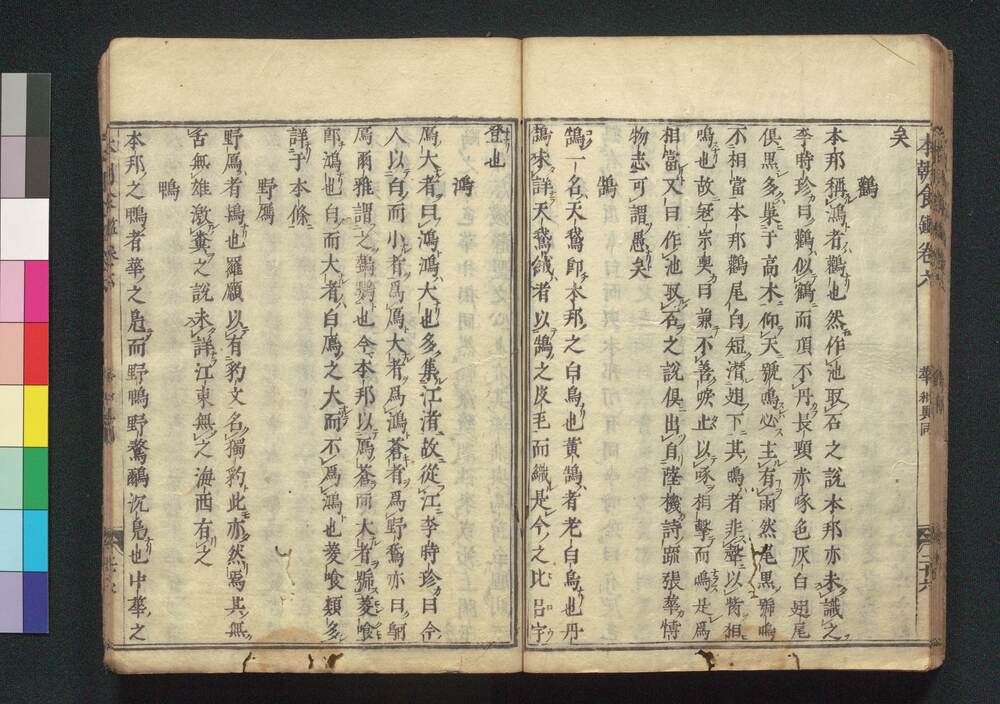 本朝食鑑卷六 華和異同 二十六
矣
鸛
本邦稱鴻者鸛也然作池取石之說本邦亦未識之
李時珍曰鸛似鶴而頂不丹長頸赤啄色灰白翅尾
俱黑多巢于高木仰天號鳴必主有雨然尾黑號鳴
不相當本邦鸛尾白短潛翅下其鳴者非聲以觜相
鳴也故冦宗奭曰兼不善唳止以啄相擊而鳴是爲
相當又曰作池取石之說俱出自陸機詩疏張華博
物志可謂愚矣
鵠
鵠一名天鵞即本邦之白鳥也黃鵠者老白鳥也丹
鵠未詳天鵞絨者以鵠之皮毛而織是今之比呂宇
登也
鴻
鴈大者曰鴻鴻大也多集江渚故從江李時珍曰今
人以白而小者爲鴈大者爲鴻蒼者爲野鵞亦曰鴚
鴈爾雅謂之鴚鵞也今本邦以鴈蒼而大者號菱喰
即鴻也白而大者白鴈之大而不爲鴻也菱喰類多
詳于本條
野鴈
野鴈者鴇也羅願以有豹文名獨豹此亦然焉其無
舌無雄激糞之說未詳江東無之海西有之
鴨
本邦之鴨者華之鳧而野鴨野鶩鸍沉鳧也中華之